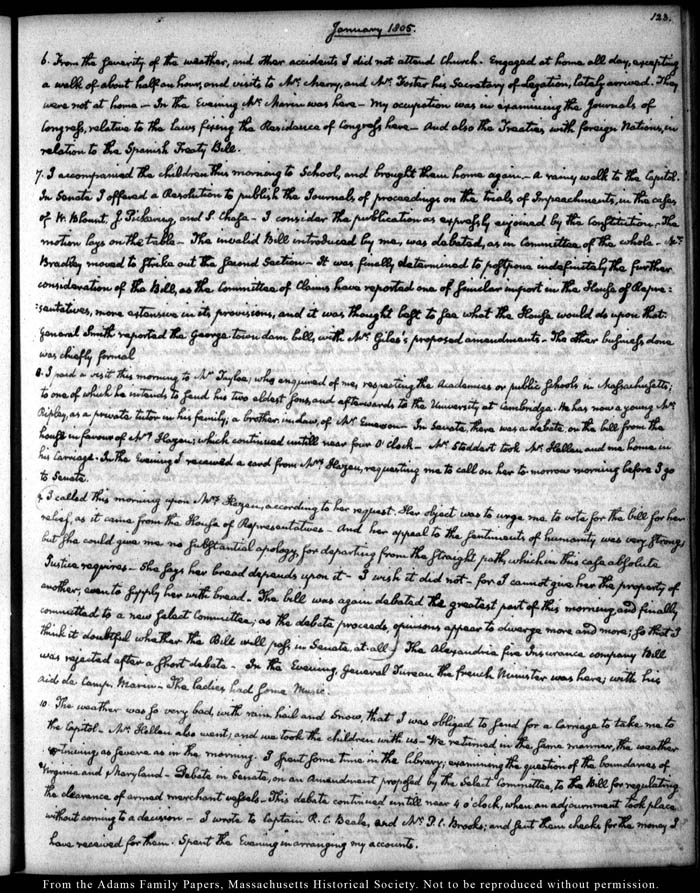 123.
January 1805.
6. From the severity of the weather, and other accidents I did not attend Church. Engaged at home all day, excepting
a walk of about half an hour, and visits to Mr. Merry, and Mr. Foster his Secretary of Legation, lately arrived. They
were not at home — In the Evening Mr. was here — My occupation was in examining the Journals of
Congress, relative to the laws fixing the Residence of Congress here — And also the Treaties with foreign Nations, in
relation to the Spanish Treaty Bill.
7. I accompanied the children this morning to School, and brought them home again — A rainy walk to the Capitol.
In Senate I offered a Resolution to publish the Journals of proceedings on the trials of Impeachments, in the cases
of W. Blount, J. Pickering, and S. Chase — I consider the publication as expressly enjoined by the Constitution. The
motion lays on the table — The invalid Bill introduced by me, was debated, as in Committee of the whole — Mr.
Bradley moved to strike out the second Section — It was finally determined to postpone indefinitely the further
consideration of the Bill, as the Committee of Claims have reported one of similar import in the House of Repre:
:sentatives, more extensive in its provisions, and it was thought best to see what the House would do upon that.
General Smith reported the George-town dam bill, with Mr. Giles's proposed amendments — The other business done
was chiefly formal
8. I paid a visit this morning to Mr. Tayloe; who enquired of me, respecting the Academies or public schools in Massachusetts;
to one of which he intends to send his two eldest sons, and afterwards to the University at Cambridge. He has now a young Mr.
Ripley, as a private tutor in his family, a brother in law, of Mr. Emerson — In Senate, there was a debate, on the bill from the
house in favour of Mrs. Hazen; which continued untill near four O'clock — Mr. Stoddart took Mr. Hellen and me home in
his Carriage. In the Evening I received a card from Mrs. Hazen, requesting me to call on her to-morrow morning before I go
to Senate.
9. I called this morning upon Mrs. Hazen, according to her request. Her object was to urge me to vote for the bill for her
relief, as it came from the House of Representatives — And her appeal to the sentiments of humanity was very strong;
but she could give me no substantial apology, for departing from the straight path, which in this case absolute
Justice requires — She says her bread depends upon it — I wish it did not — for I cannot give her the property of
another, even to supply her with bread. The bill was again debated the greatest part of this morning and finally
committed to a new select Committee; as the debate proceeds, opinions appear to diverge more and more; so that I
think it doubtful whether the Bill will pass in Senate, at all. The Alexandria fire Insurance company Bill
was rejected after a short debate — In the Evening, General Tureau the french Minister was here, with his
aid de Camp, — The ladies had some Music.
10. The weather was so very bad, with rain hail and Snow, that I was obliged to send for a Carriage to take me to
the Capitol — Mr. Hellen also went; and we took the children with us — We returned in the same manner, the weather
continuing as severe as in the morning. I spent some time in the Library; examining the question of the boundaries of
Virginia and Maryland — Debate in Senate, on an Amendment proposed by the Select Committee to the Bill for regulating
the clearance of armed merchant vessels — This debate continued untill near 4 o'clock, when an adjournment took place
without coming to a decision — I wrote to Captain R. C. Beale, and Mr. P. C. Brooks; and sent them checks for the money I
have received for them. Spent the Evening in arranging my accounts.
From the Adams Family Papers, Massachusetts Historical Society. Not to be reproduced without permission.